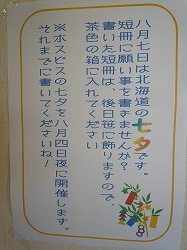 八月七日は北海道の七夕です。
短冊に願い事を書きませんか?
書いた短冊は、後日笹に飾りますので、
茶色の箱に入れてください
※ホスピスの七夕を八月四日夜に開催します。
それまでに書いてくださいね!